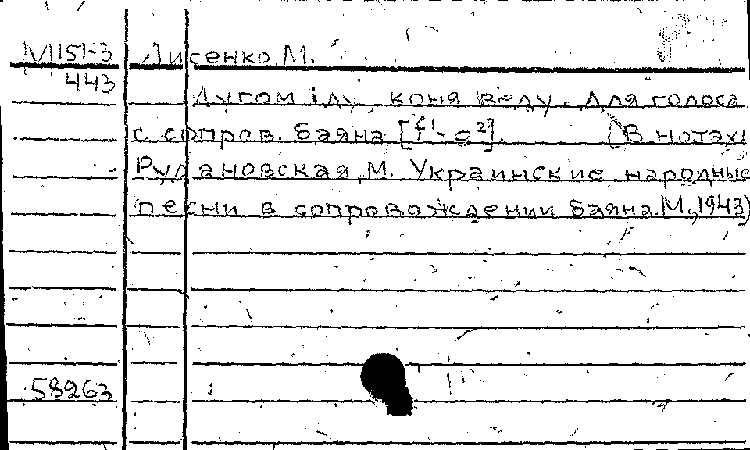 М151-3 Лисенко М.
443
Лугом іду, коня веду. Для голоса
с сопров. баяна [f¹-g²]. (В нотах:
Рудановская, М. Украинские народные
песни в сопровождении баяна. М., 1943)
58263